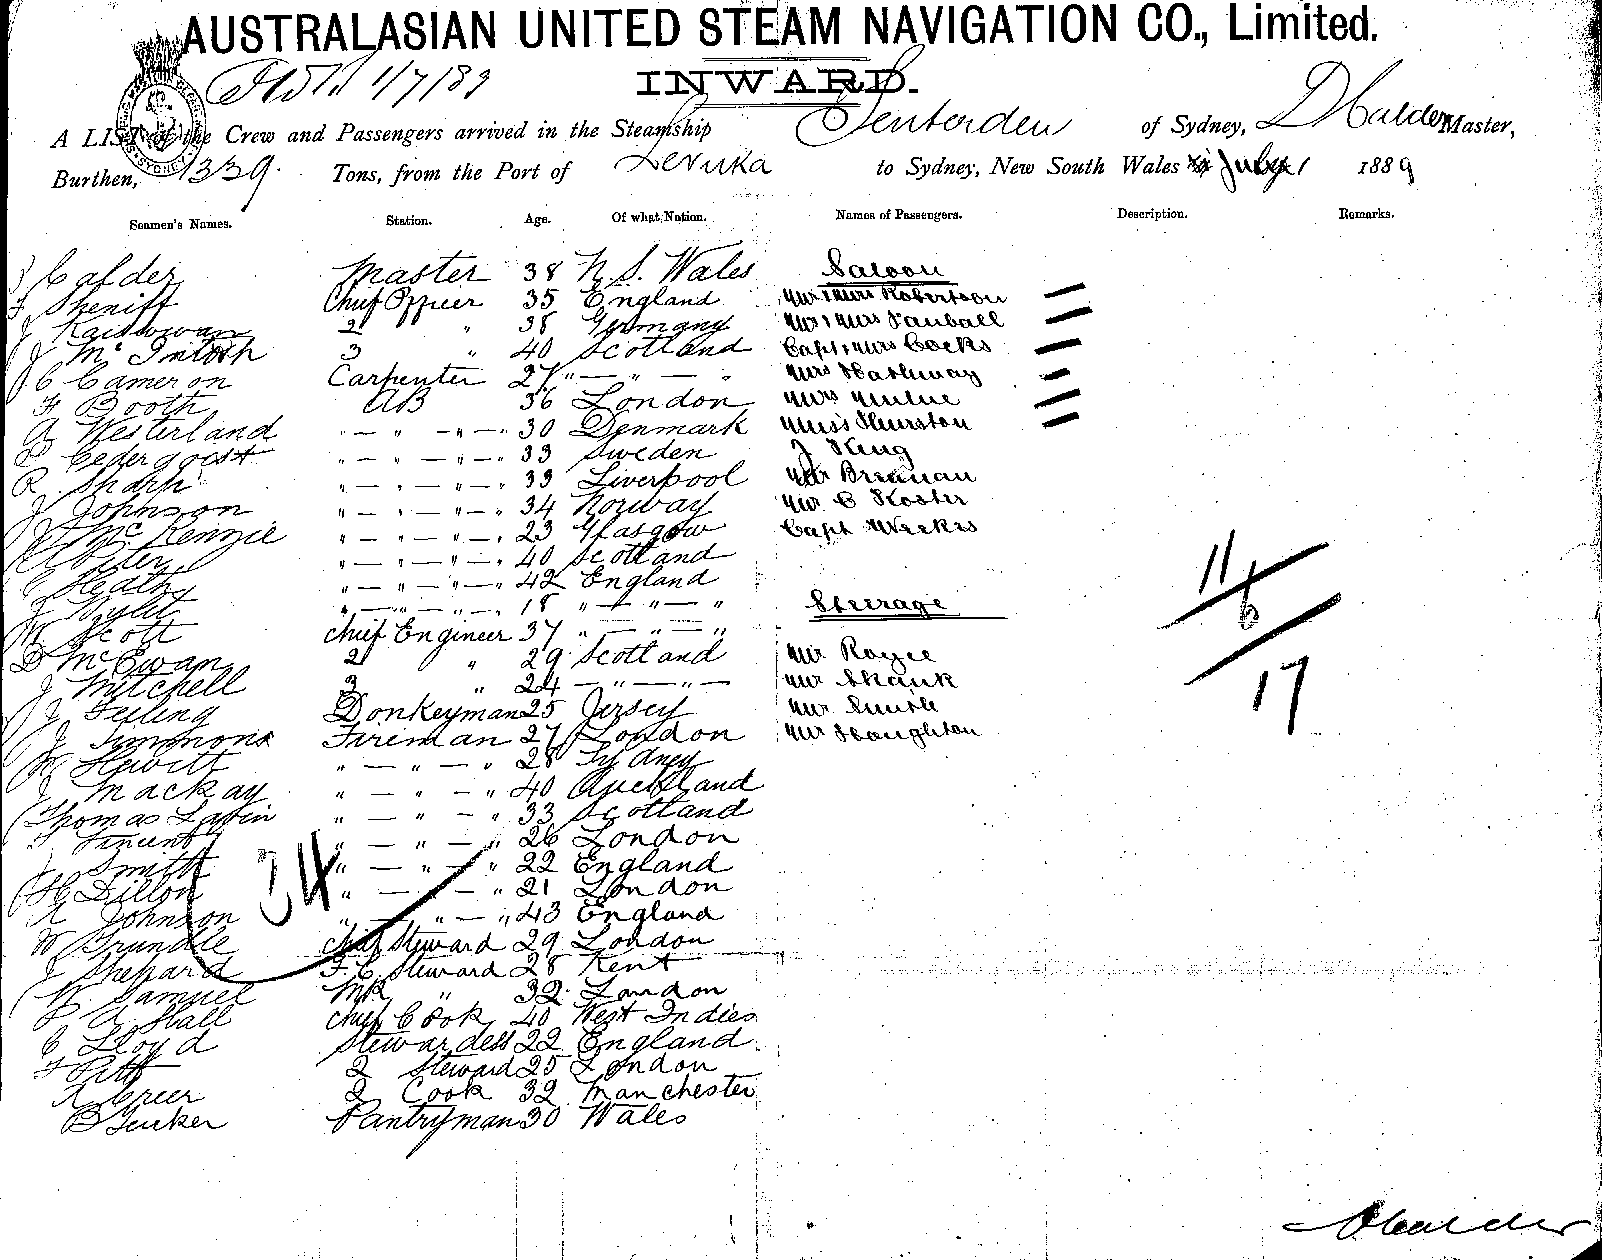 AUSTRALASIAN UNITED STEAM NAVIGATION CO., Limited.
1/7/89 INWARD.
A LIST of the Crew and Passengers arrived in the Steamship Tenterden of Sydney, D Calder Master,
Burthen, 1339 Tons, from the Port of Levuka to Sydney, New South Wales July 1 1889
Seamen's Names. Station. Age. Of what Nation. Names of Passengers. Description. Remarks.
Calder Master 38 N. S. Wales Saloon
Sheriff Chief Officer 35 England Mr & Mrs Robertson
2 " 38 Germany Mr & Mrs
J McIntosh 3 " 40 Scotland Capt & Mrs Cocks
C Cameron Carpenter 27 " — " — " Mrs Hathway
F Booth AB 36 London Mrs Milne
A Westerland " — " — " — " 30 Denmark Miss Thurston
Cedergoost " — " — " — " 33 Sweden J King
R Sharp " — " — " — " 33 Liverpool Mr Brennan
J Johnson " — " — " — " 34 Norway Mr C Koster
McKenzie " — " — " — " 23 Glasgow Capt Weekes
" — " — " — " 40 Scotland
C Heath " — " — " — " 42 England 11
" — " — " — " 18 " — " — " Steerage 6
W Scott Chief Engineer 37 " — " — "
D McEwan 2 " 29 Scotland Mr Royce
J Mitchell 3 " 24 — " — " — Mr Shank 17
J Donkeyman 25 Jersey Mr Smith
J Simmons Fireman 27 London Mr Houghton
W Hewitt " — " — " 28 Sydney
J Mackay " — " — " 40 Auckland
Thomas Lavin " — " — " 33 Scotland
F Vincent " — " — " 26 London
J Smith 34 " — " — " 22 England
H Dillon " — " — " 21 London
A Johnson " — " — " 43 England
W Grundle Chief Steward 29 London
J Shepard F. C. Steward 28 Kent
W. Samuel MR " 32 London
A Hall Chief Cook 40 West Indies
C Lloyd Stewardess 22 England
F Pitt 2 Steward 25 London
A Greer 2 Cook 32 Manchester
B Tucker Pantryman 30 Wales
D Calder